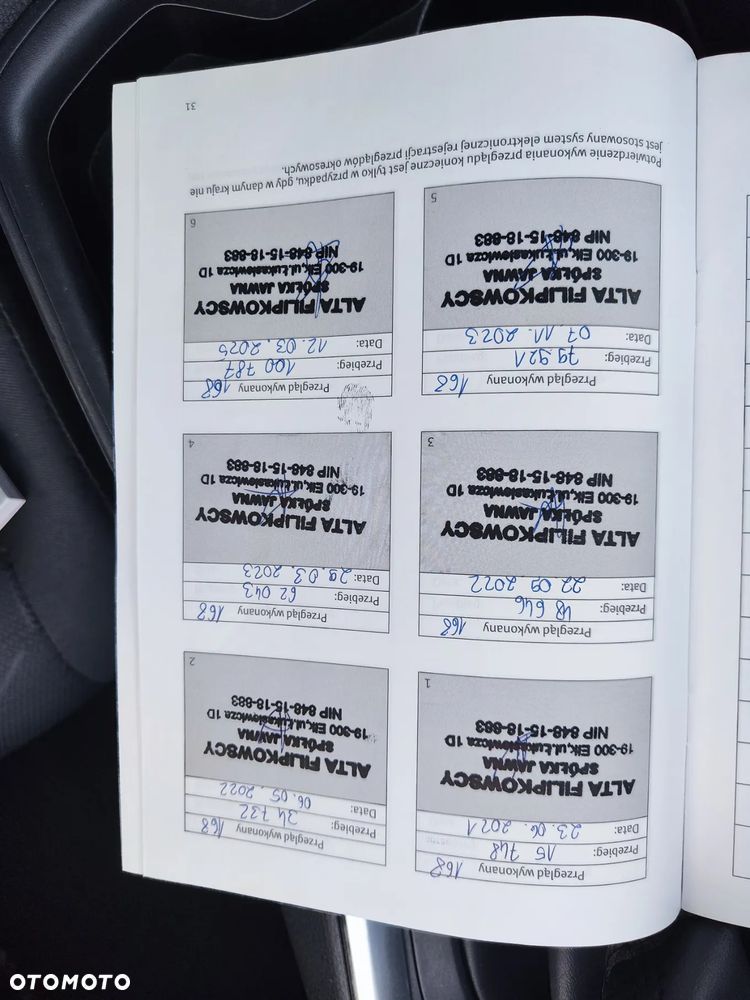 Przegląd wykonany 168
Przebieg: 15 748
Data: 23.06.2021
ALTA FILIPKOWSCY
SPÓŁKA JAWNA
19-300 Ełk, ul. Łukasiewicza 1D
NIP 848-15-18-883
1
Przegląd wykonany 168
Przebieg: 34 732
Data: 06.05.2022
ALTA FILIPKOWSCY
SPÓŁKA JAWNA
19-300 Ełk, ul. Łukasiewicza 1D
NIP 848-15-18-883
2
Przegląd wykonany 168
Przebieg: 48 646
Data: 22.09.2022
ALTA FILIPKOWSCY
SPÓŁKA JAWNA
19-300 Ełk, ul. Łukasiewicza 1D
NIP 848-15-18-883
3
Przegląd wykonany 168
Przebieg: 62 043
Data: 29.03.2023
ALTA FILIPKOWSCY
SPÓŁKA JAWNA
19-300 Ełk, ul. Łukasiewicza 1D
NIP 848-15-18-883
4
Przegląd wykonany 168
Przebieg: 79 921
Data: 07.11.2023
ALTA FILIPKOWSCY
SPÓŁKA JAWNA
19-300 Ełk, ul. Łukasiewicza 1D
NIP 848-15-18-883
5
Przegląd wykonany 168
Przebieg: 100 787
Data: 12.03.2025
ALTA FILIPKOWSCY
SPÓŁKA JAWNA
19-300 Ełk, ul. Łukasiewicza 1D
NIP 848-15-18-883
6
Potwierdzenie wykonania przeglądu konieczne jest tylko w przypadku, gdy w danym kraju nie
jest stosowany system elektronicznej rejestracji przeglądów okresowych.
31
OTOMOTO